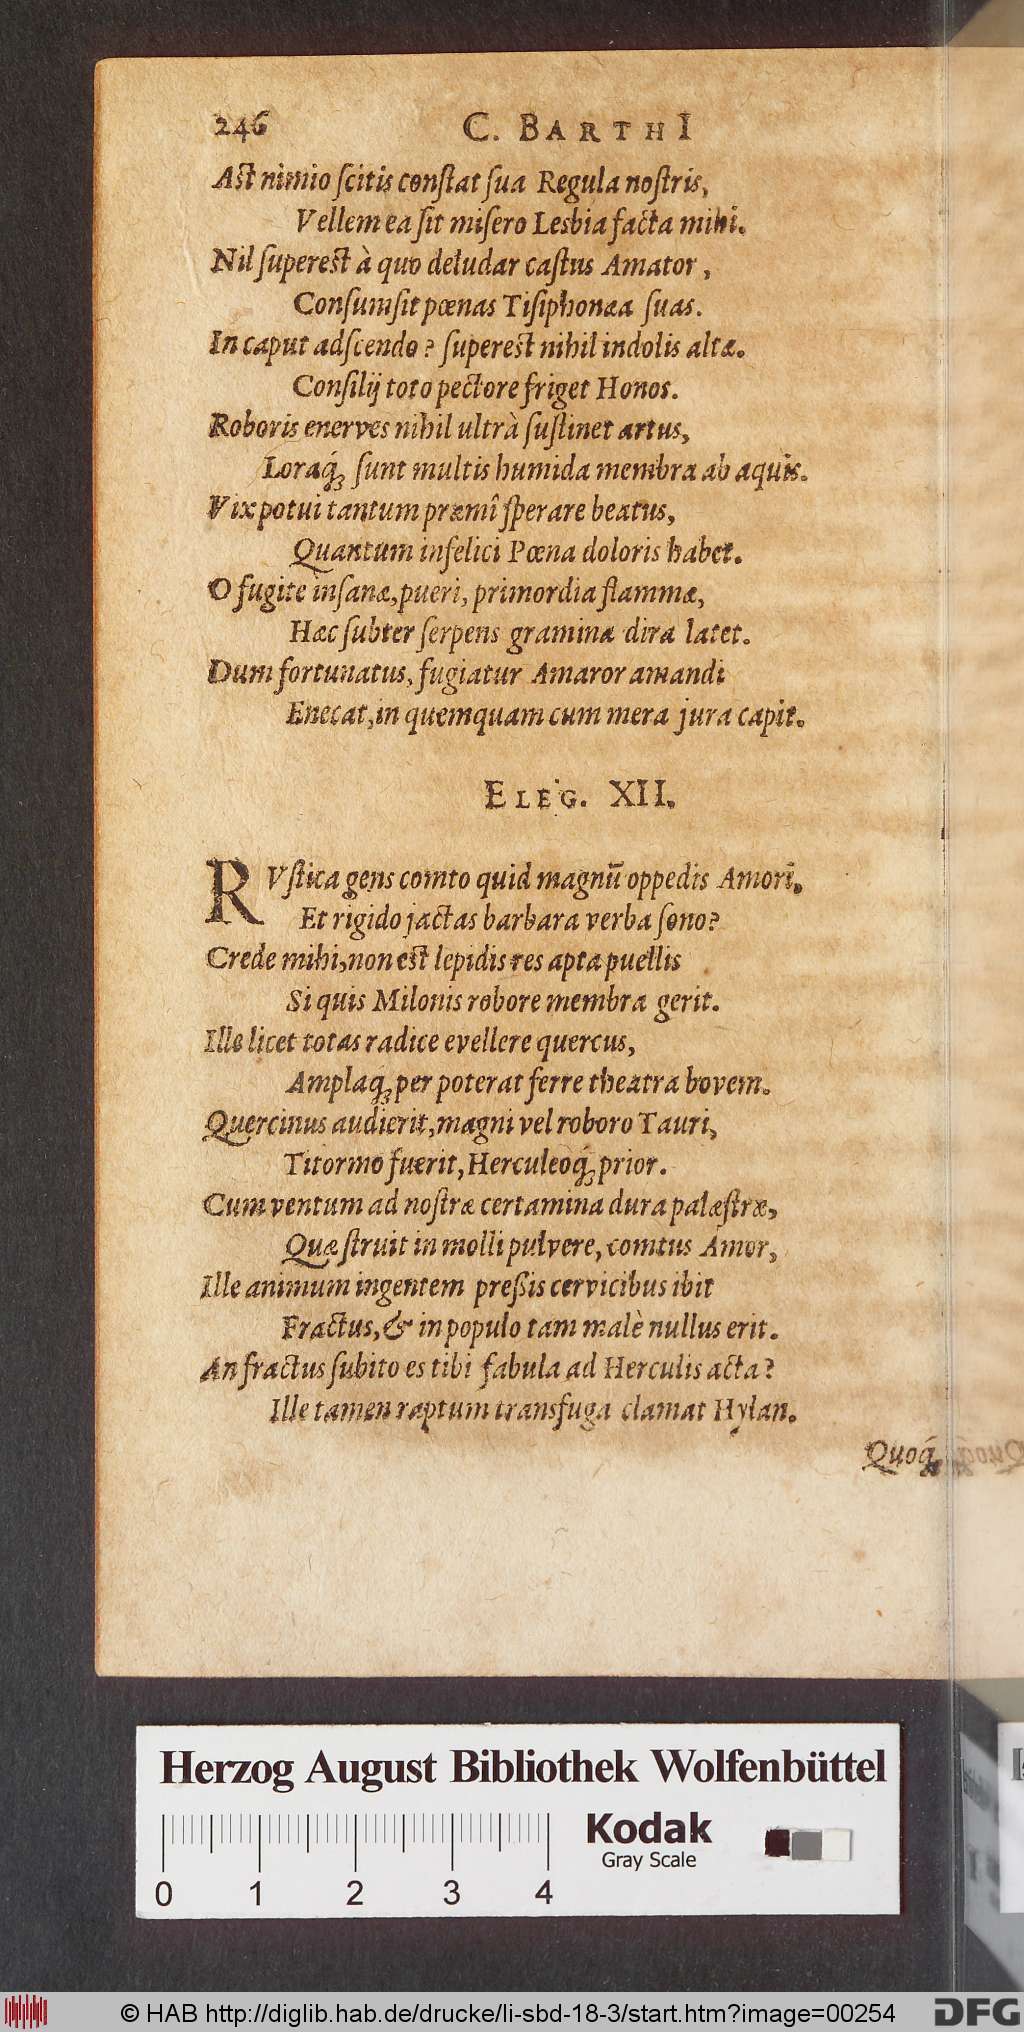 246 C. BARTHI
Ast nimio scitis constat sua Regula nostris,
Vellem ea sit misero Lesbia facta mihi.
Nil superest à quo deludar castus Amator,
Consumsit pœnas Tisiphonæa suas.
In caput adscendo? superest nihil indolis altæ.
Consilij toto pectore friget Honos.
Roboris enerves nihil ultrà sustinet artus,
Loraq́; sunt multis humida membra ab aquis.
Vix potui tantum præmî sperare beatus,
Quantum infelici Pœna doloris habet.
O fugite insanæ, pueri, primordia flammæ,
Hæc subter serpens gramina dira latet.
Dum fortunatus, fugiatur Amaror amandi
Enecat, in quemquam cum mera jura capit.
ELEG. XII.
RVstica gens comto quid magnū oppedis Amori,
Et rigido jactas barbara verba sono?
Crede mihi, non est lepidis res apta puellis
Si quis Milonis robore membra gerit.
Ille licet totas radice evellere quercus,
Amplaq́; per poterat ferre theatra bovem.
Quercinus audierit, magni vel roboro Tauri,
Titormo fuerit, Herculeoq́; prior.
Cum ventum ad nostræ certamina dura palæstræ,
Quæ struit in molli pulvere, comtus Amor,
Ille animum ingentem preßis cervicibus ibit
Fractus, & in populo tam malè nullus erit.
An fractus subito es tibi fabula ad Herculis acta?
Ille tamen raptum transfuga clamat Hylan.
Quoq́;
Herzog August Bibliothek Wolfenbüttel
Kodak
Gray Scale
0 1 2 3 4
© HAB http://diglib.hab.de/drucke/li-sbd-18-3/start.htm?image=00254
DFG